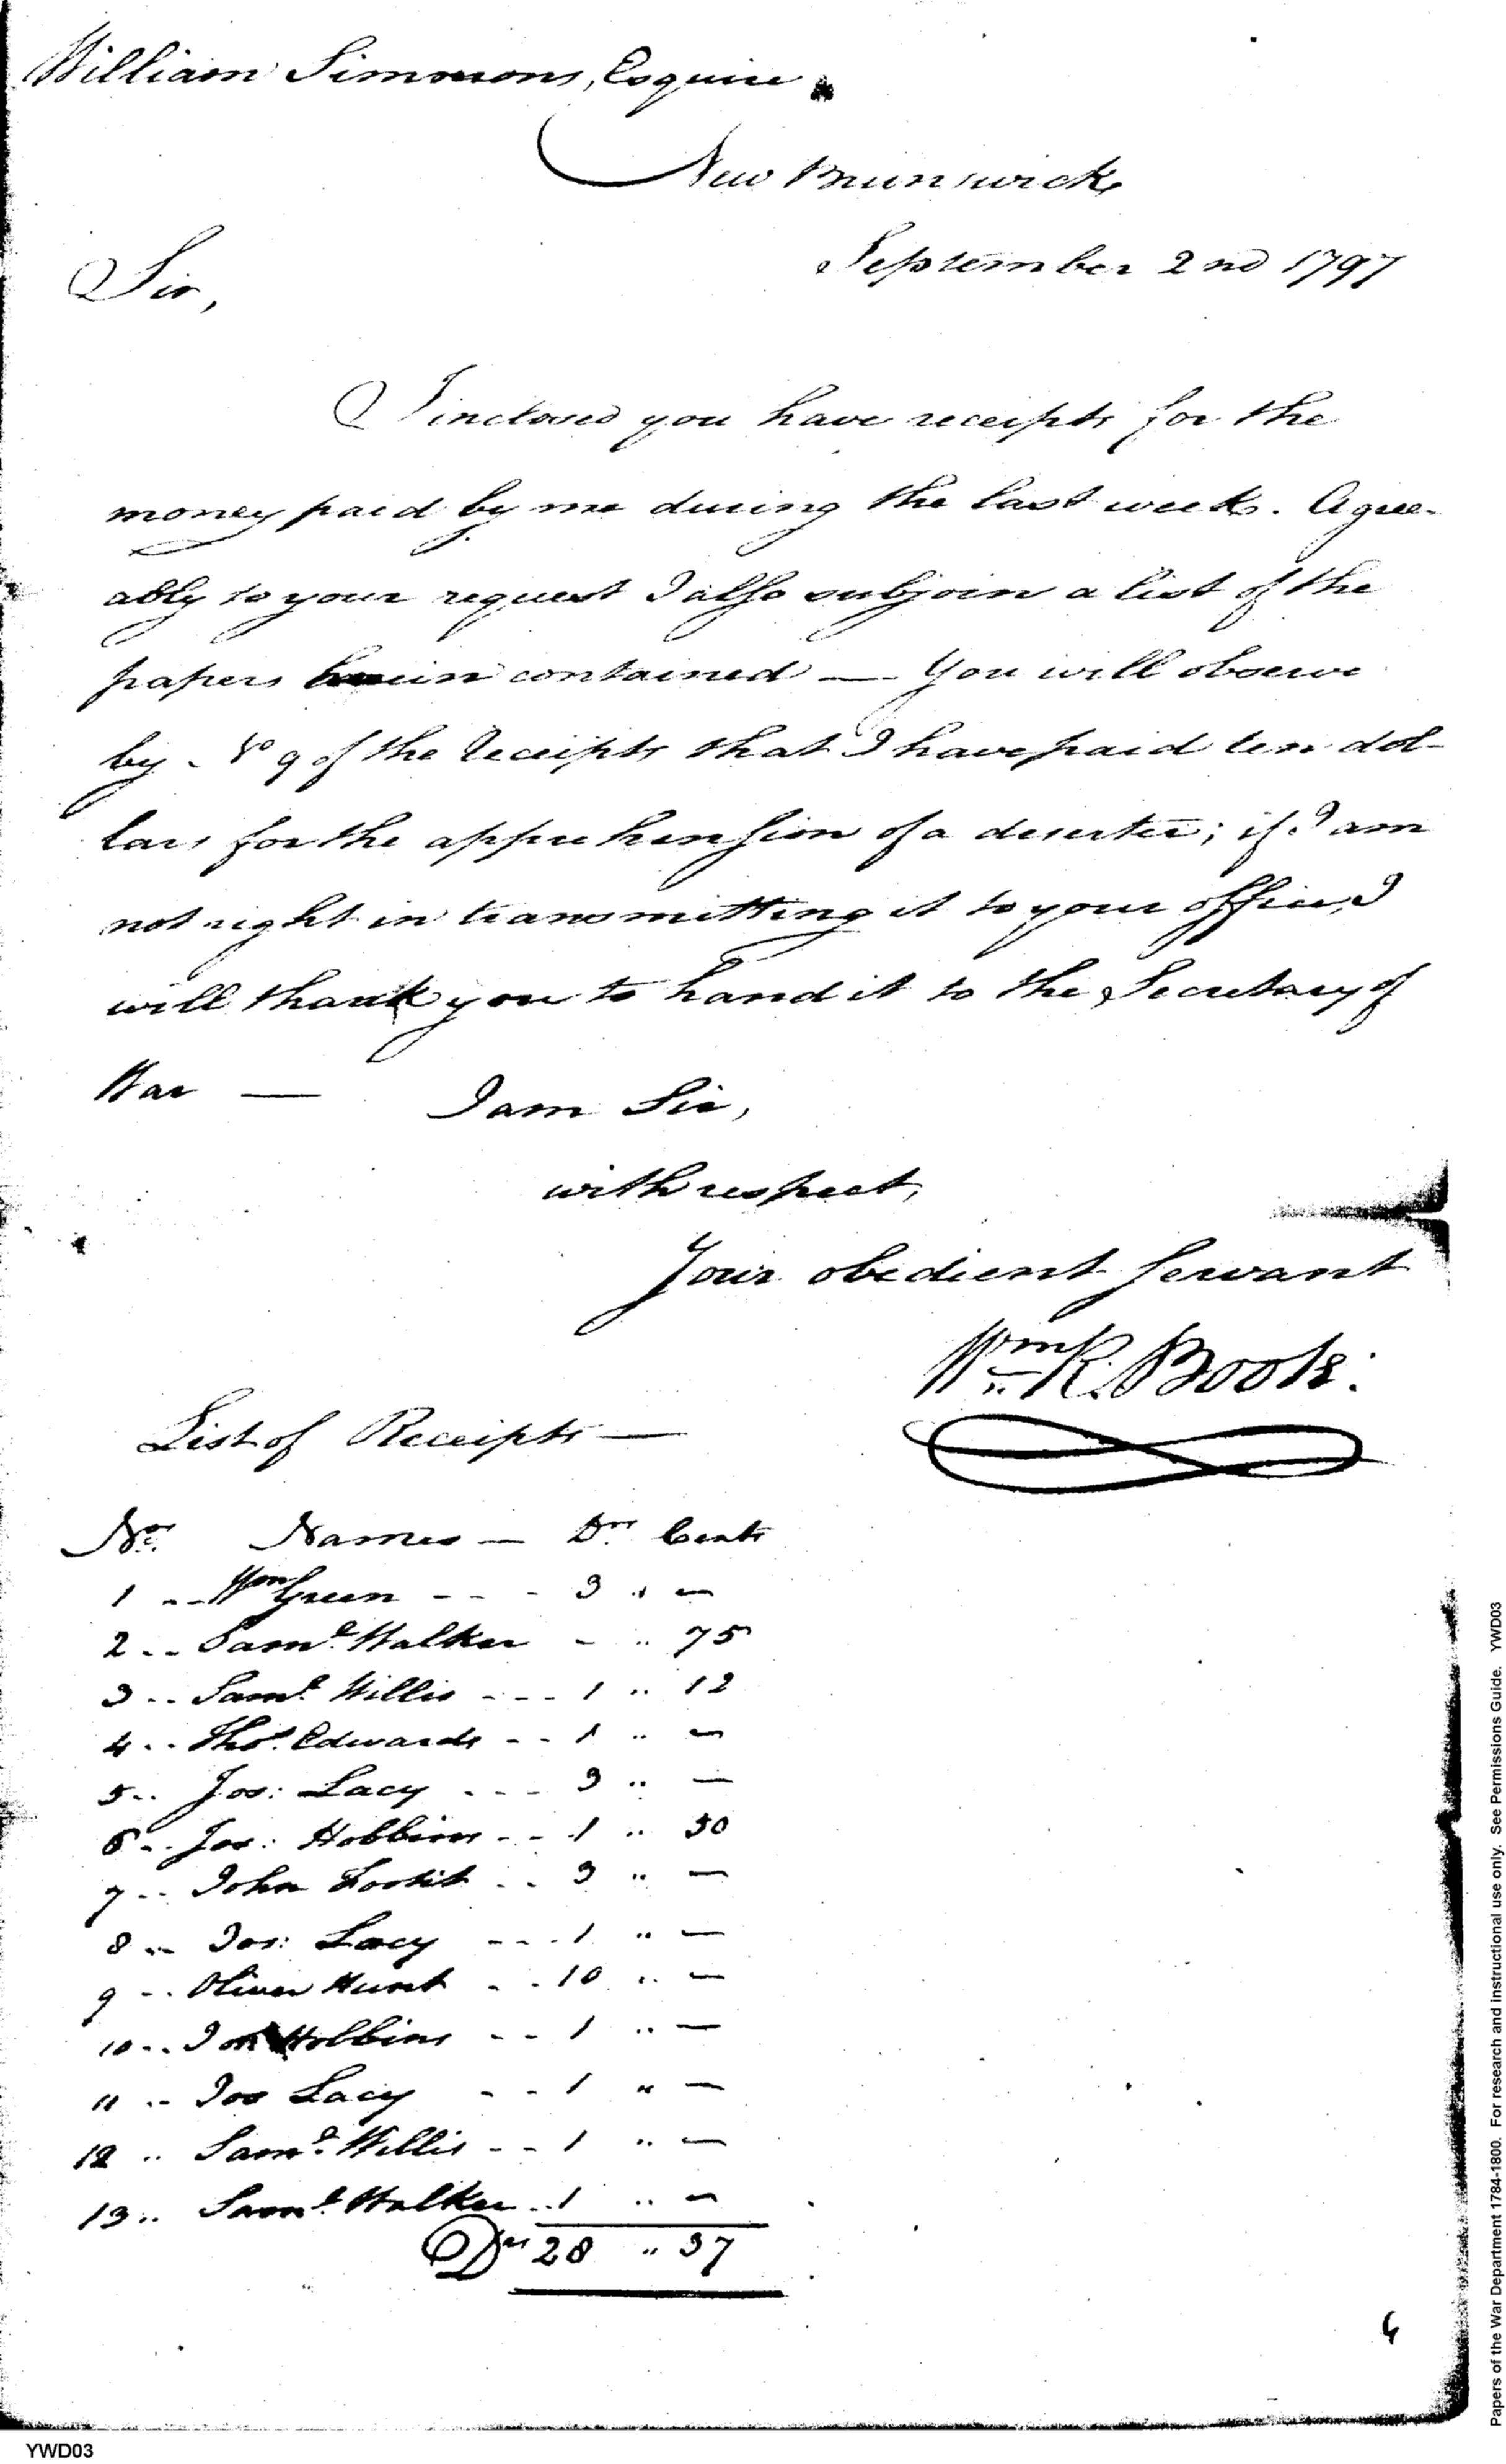 William Simmons, Esquire
New Brunswick
September 2nd 1797
Sir,
Inclosed you have receipts for the
money paid by me during the last week. Agree-
ably to your request I also subjoin a list of the
papers herein contained — You will observe
by No 9 of the Receipts that I have paid ten dol-
lars for the apprehension of a deserter; if I am
not right in transmitting it to your office, I
will thank you to hand it to the Secretary of
War —
I am Sir,
with respect,
Your obedient Servant
Wm R. Boote.
List of Receipts —
No. Names — Drs Cents
1 -- Wm Green - - - 3 .. —
2 -- Saml. Walker - .. 75
3 -- Saml. Willis - - - 1 .. 12
4 -- Thos. Edwards - - 1 .. —
5 -- Jos: Lacy - - - 3 .. —
6 -- Jos: Hobbins - - 1 .. 50
7 -- John - - 3 .. —
8 -- Jos: Lacy - - - 1 .. —
9 -- Oliver Hunt - - 10 .. —
10 -- Jos Hobbins - - 1 .. —
11 -- Jos Lacy - - 1 .. —
12 .. Saml. Willis - - 1 .. —
13 .. Saml. Walker .. 1 .. —
Drs 28 .. 37
YWD03
Papers of the War Department 1784-1800. For research and instructional use only. See Permissions Guide. YWD03